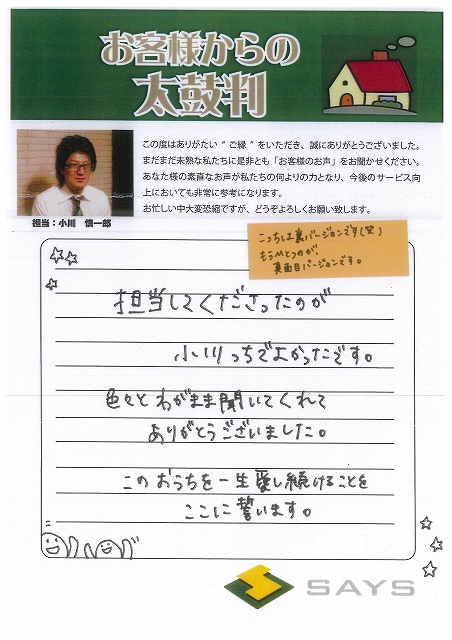 お客様からの
太鼓判
この度はありがたい “ ご縁 ” をいただき、誠にありがとうございました。
まだまだ未熟な私たちに是非とも「お客様のお声」をお聞かせください。
あなた様の素直なお声が私たちの何よりの力となり、今後のサービス向
上においても非常に参考になります。
お忙しい中大変恐縮ですが、どうぞよろしくお願い致します。
担当：小川 慎一郎
こっちは裏バージョンです(笑)
もうひとつのが、
真面目バージョンです。
担当してくださったのが
小川っちでよかったです。
色々とわがまま聞いてくれて
ありがとうございました。
このおうちを一生愛し続けることを
ここに誓います。
SAYS